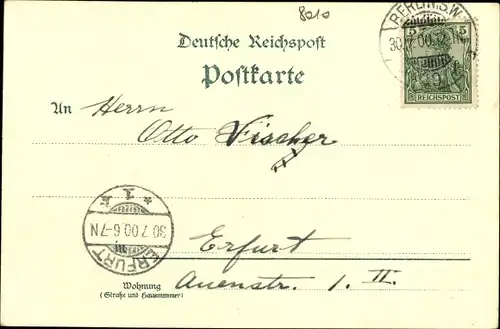 8010
BERLIN S.W.
30.7.00.
5 5
REICHSPOST
Deutsche Reichspost
Postkarte
An Herrn
Otto Vischer
in
Erfurt
Wohnung Auenstr. 1. II.
(Straße und Hausnummer)
* 1 k
30.7.00.6-7N
ERFURT